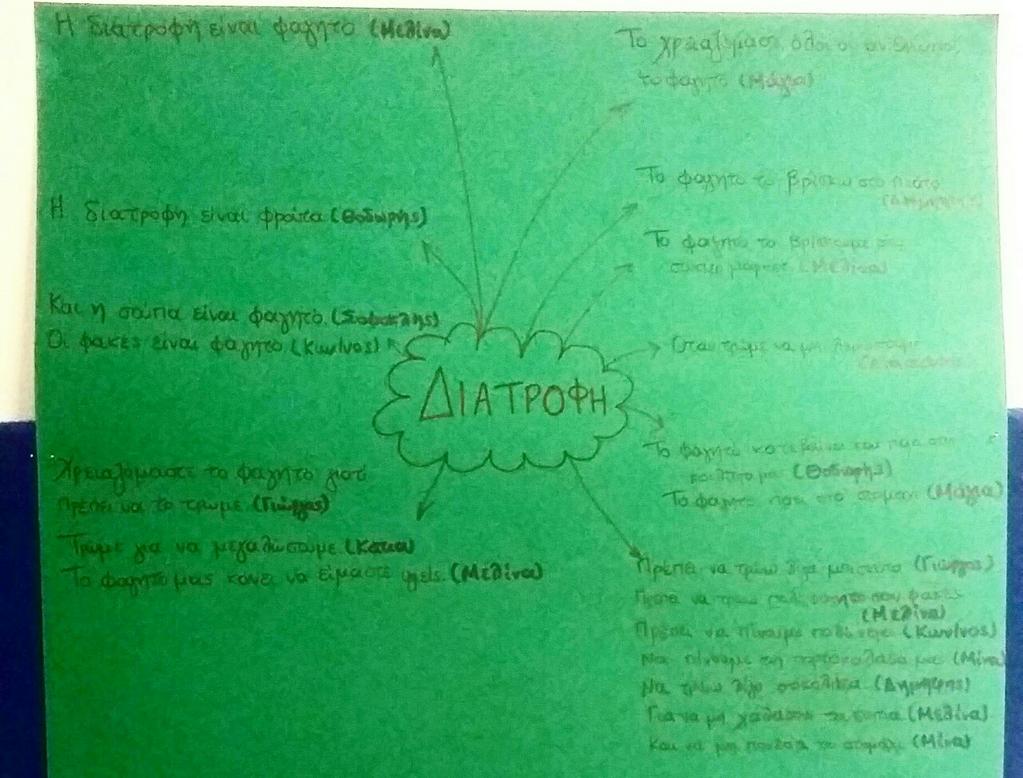 Η διατροφή είναι φαγητό (Μελίνα)
Η διατροφή είναι φρούτα (Θοδωρής)
Και η σούπα είναι φαγητό. (Σοφοκλής)
Οι φακές είναι φαγητό. (Κων/νος)
ΔΙΑΤΡΟΦΗ
Χρειαζόμαστε το φαγητό γιατί
πρέπει να το τρώμε (Γιώργος)
Τρώμε για να μεγαλώσουμε (Κάτια)
Το φαγητό μας κάνει να είμαστε υγιείς. (Μελίνα)
Το χρειαζόμαστε όλοι οι άνθρωποι
το φαγητό (Μάγια)
Το φαγητό το βρίσκω στο πιάτο
(Δημήτρης)
Το φαγητό το βρίσκουμε
(Μελίνα)
Όταν τρώμε να μη
Το φαγητό κατεβαίνει
(Θοδωρής)
Το φαγητό πάει στο στομάχι (Μάγια)
Πρέπει να τρώω λίγα μπισκότα (Γιώργος)
να τρώω φακές
(Μελίνα)
Πρέπει να πίνουμε πολύ νερό (Κων/νος)
Να πίνουμε την πορτοκαλάδα μας (Μίνα)
Να τρώω λίγο σοκολάτα (Δημήτρης)
Για να μη χαλάσουν τα δόντια (Μελίνα)
Και να μη πονέσει το στομάχι (Μίνα)